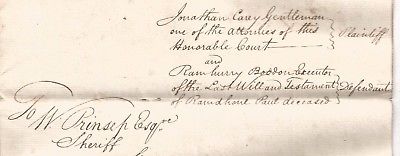 Jonathan Carey Gentleman
one of the attornies of this
Honorable Court
Plaintiff
and
Ramhurry Bosdon Executor
of the Last Will and Testament
of Ramdhone Paul deceased
Defendant
To
W. Prinsep Esqre
Sheriff